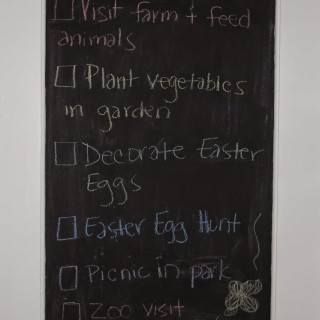 Visit farm + feed
animals
Plant vegetables
in garden
Decorate Easter
Eggs
Easter Egg Hunt
Picnic in park
Zoo visit